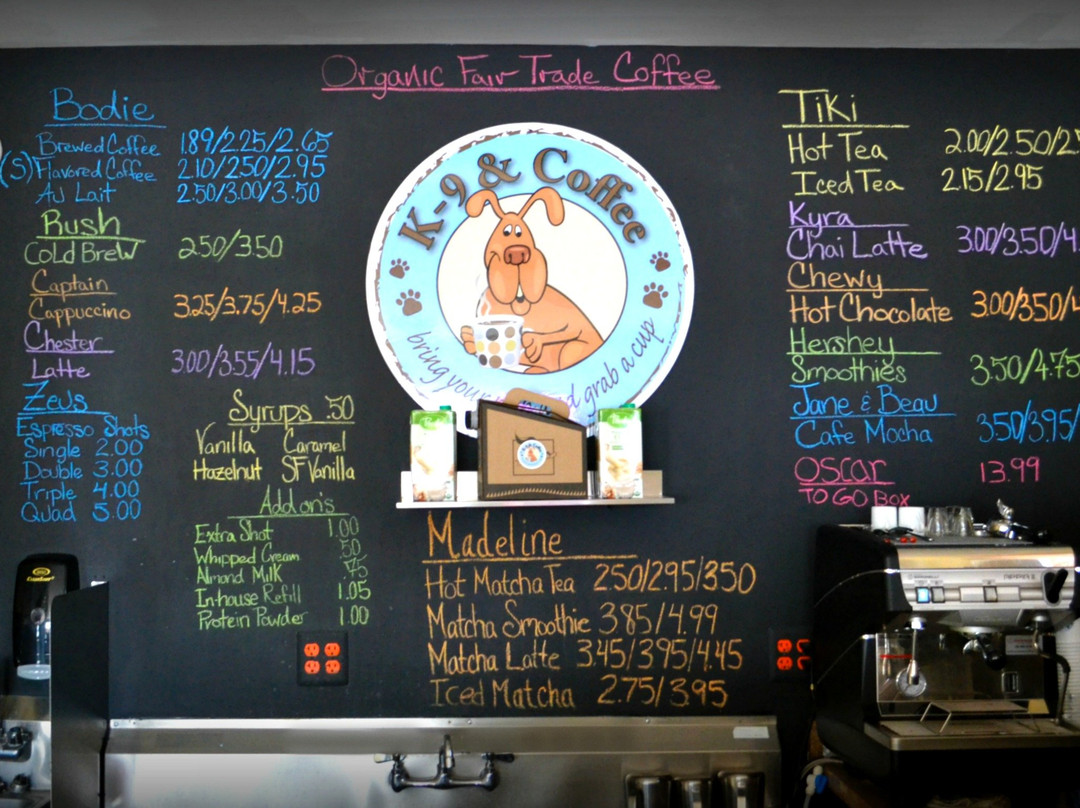 Organic Fair Trade Coffee
Bodie
Brewed Coffee 1.89/2.25/2.65
(S) Flavored Coffee 2.10/2.50/2.95
Au Lait 2.50/3.00/3.50
Rush
Cold Brew 2.50/3.50
Captain
Cappuccino 3.25/3.75/4.25
Chester
Latte 3.00/3.55/4.15
Zeus
Espresso Shots
Single 2.00
Double 3.00
Triple 4.00
Quad 5.00
Syrups .50
Vanilla Caramel
Hazelnut SF Vanilla
Add on's
Extra Shot 1.00
Whipped Cream .50
Almond Milk .75
In-house Refill 1.05
Protein Powder 1.00
K-9 & Coffee
bring your
d grab a cup
Madeline
Hot Matcha Tea 2.50/2.95/3.50
Matcha Smoothie 3.85/4.99
Matcha Latte 3.45/3.95/4.45
Iced Matcha 2.75/3.95
Tiki
Hot Tea 2.00/2.50/2.
Iced Tea 2.15/2.95
Kyra
Chai Latte 3.00/3.50/4.
Chewy
Hot Chocolate 3.00/3.50/4
Hershey
Smoothies 3.50/4.75
Jane & Beau
Cafe Mocha 3.50/3.95/
Oscar 13.99
TO GO BOX